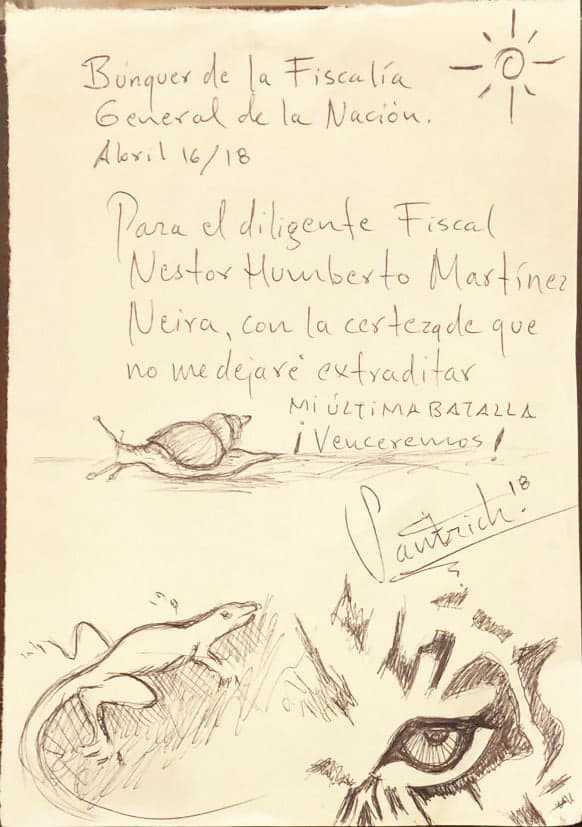 Búnquer de la Fiscalía
General de la Nación.
Abril 16/18
Para el diligente Fiscal
Nestor Humberto Martínez
Neira, con la certeza de que
no me dejaré extraditar
MI ÚLTIMA BATALLA
¡Venceremos!
Santrich.
18